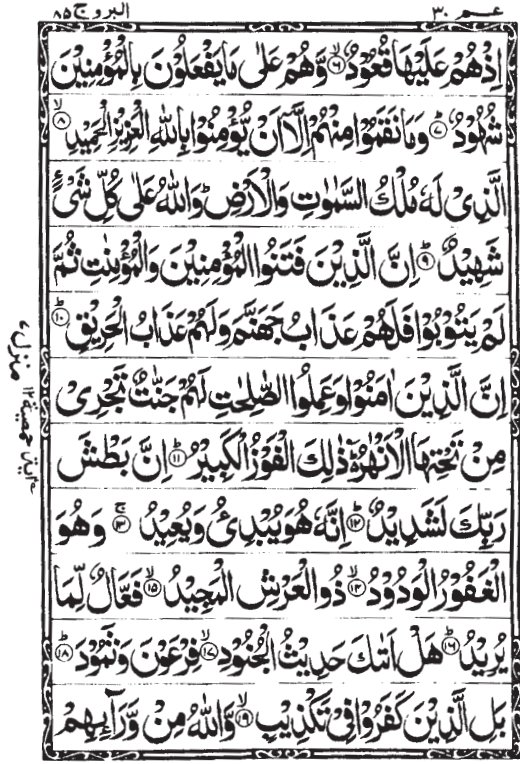 عـم ٣٠ البروج ٨٥
اِذْ هُمْ عَلَيْهَا قُعُوْدٌ ۙ﴿٦﴾ وَّهُمْ عَلٰى مَا يَفْعَلُوْنَ بِالْمُؤْمِنِيْنَ
شُهُوْدٌ ؕ﴿٧﴾ وَمَا نَقَمُوْا مِنْهُمْ اِلَّاۤ اَنْ يُّؤْمِنُوْا بِاللّٰهِ الْعَزِيْزِ الْحَمِيْدِ ۙ﴿٨﴾
الَّذِىْ لَهٗ مُلْكُ السَّمٰوٰتِ وَالْاَرْضِ ؕ وَاللّٰهُ عَلٰى كُلِّ شَىْءٍ
شَهِيْدٌ ؕ﴿٩﴾ اِنَّ الَّذِيْنَ فَتَنُوا الْمُؤْمِنِيْنَ وَالْمُؤْمِنٰتِ ثُمَّ
لَمْ يَتُوْبُوْا فَلَهُمْ عَذَابُ جَهَنَّمَ وَلَهُمْ عَذَابُ الْحَرِيْقِ ؕ﴿١٠﴾
اِنَّ الَّذِيْنَ اٰمَنُوْا وَعَمِلُوا الصّٰلِحٰتِ لَهُمْ جَنّٰتٌ تَجْرِىْ
مِنْ تَحْتِهَا الْاَنْهٰرُ ؕ ذٰلِكَ الْفَوْزُ الْكَبِيْرُ ؕ﴿١١﴾ اِنَّ بَطْشَ
رَبِّكَ لَشَدِيْدٌ ؕ﴿١٢﴾ اِنَّهٗ هُوَ يُبْدِئُ وَيُعِيْدُ ۚ﴿١٣﴾ وَهُوَ
الْغَفُوْرُ الْوَدُوْدُ ۙ﴿١٤﴾ ذُو الْعَرْشِ الْمَجِيْدُ ۙ﴿١٥﴾ فَعَّالٌ لِّمَا
يُرِيْدُ ؕ﴿١٦﴾ هَلْ اَتٰٮكَ حَدِيْثُ الْجُنُوْدِ ۙ﴿١٧﴾ فِرْعَوْنَ وَثَمُوْدَ ؕ﴿١٨﴾
بَلِ الَّذِيْنَ كَفَرُوْا فِىْ تَكْذِيْبٍ ۙ﴿١٩﴾ وَّاللّٰهُ مِنْ وَّرَآئِهِمْ
منزل ٧